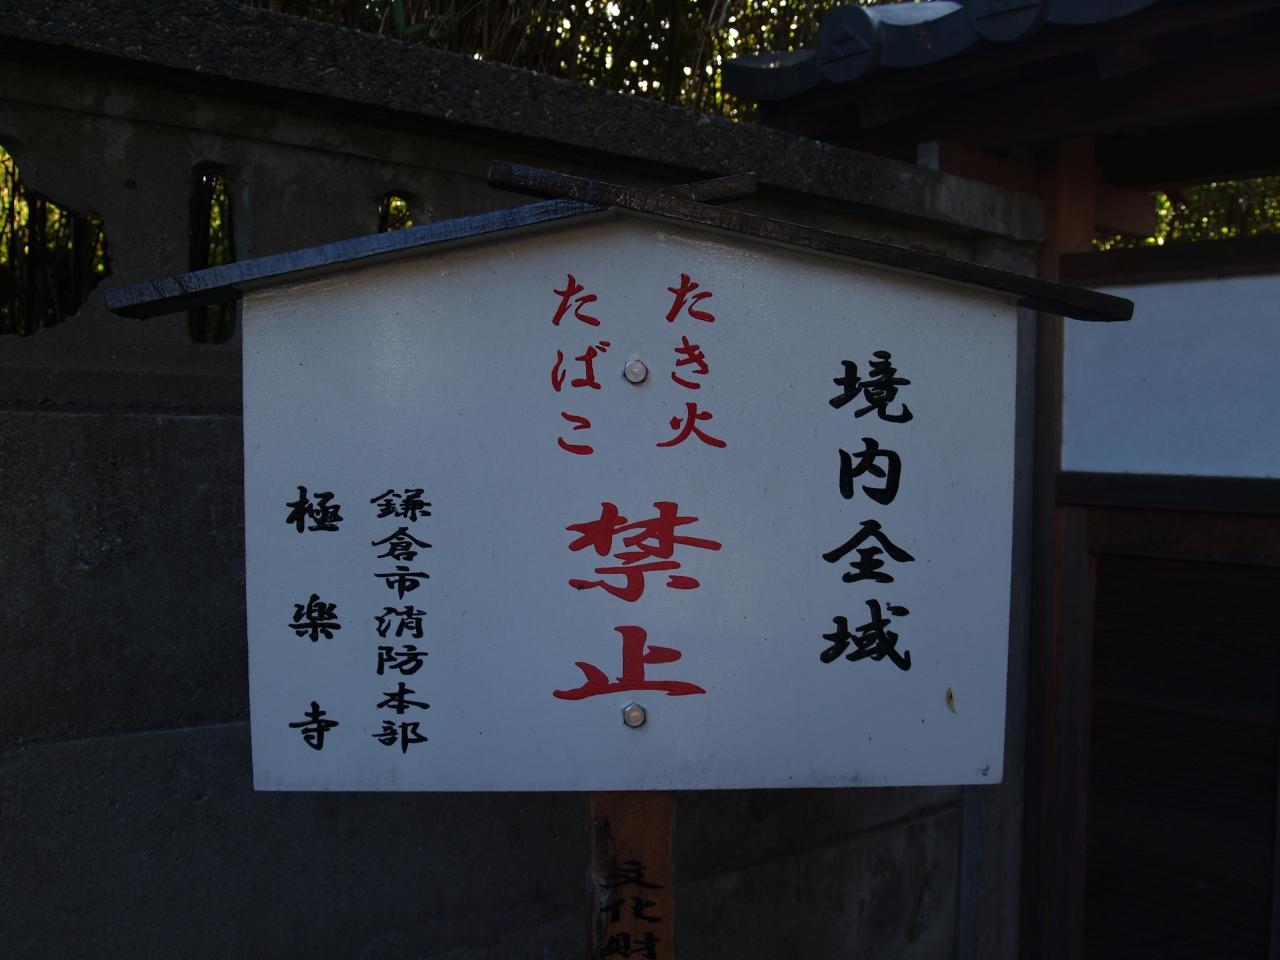 境内全域
たき火
たばこ
禁止
鎌倉市消防本部
極楽寺
文化財